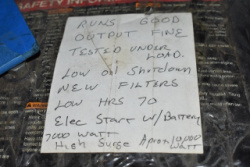 RUNS GOOD
OUTPUT FINE
TESTED UNDER
LOAD.
Low Oil Shutdown
NEW FILTERS
LOW HRS 70
Elec Start w/Battery
7000 WATT
High Surge Aprox 10,000
WATT